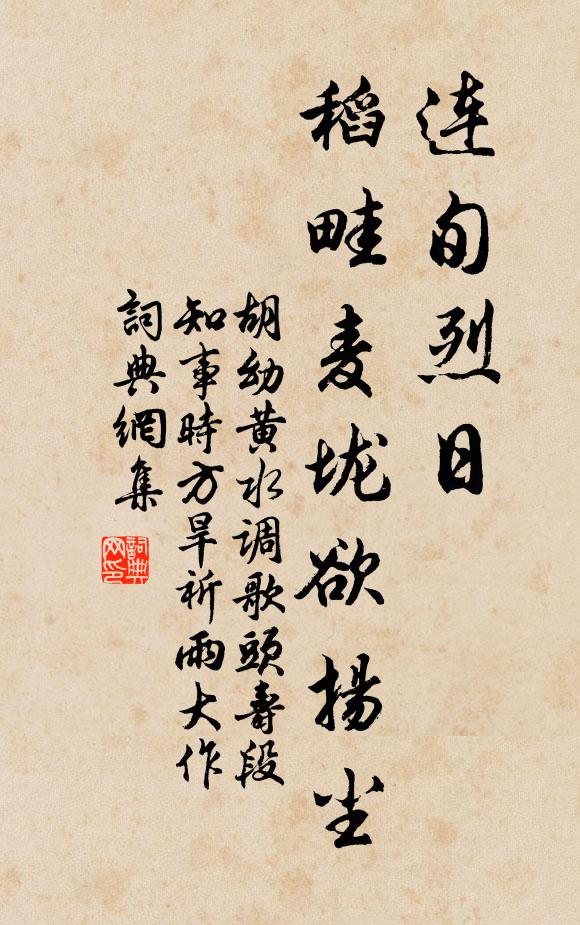 连旬烈日
稻畦麦垅欲揚尘
胡幼黄水调歌頭壽段
知事時方旱祈雨大作
詞典網集
詞典
网印